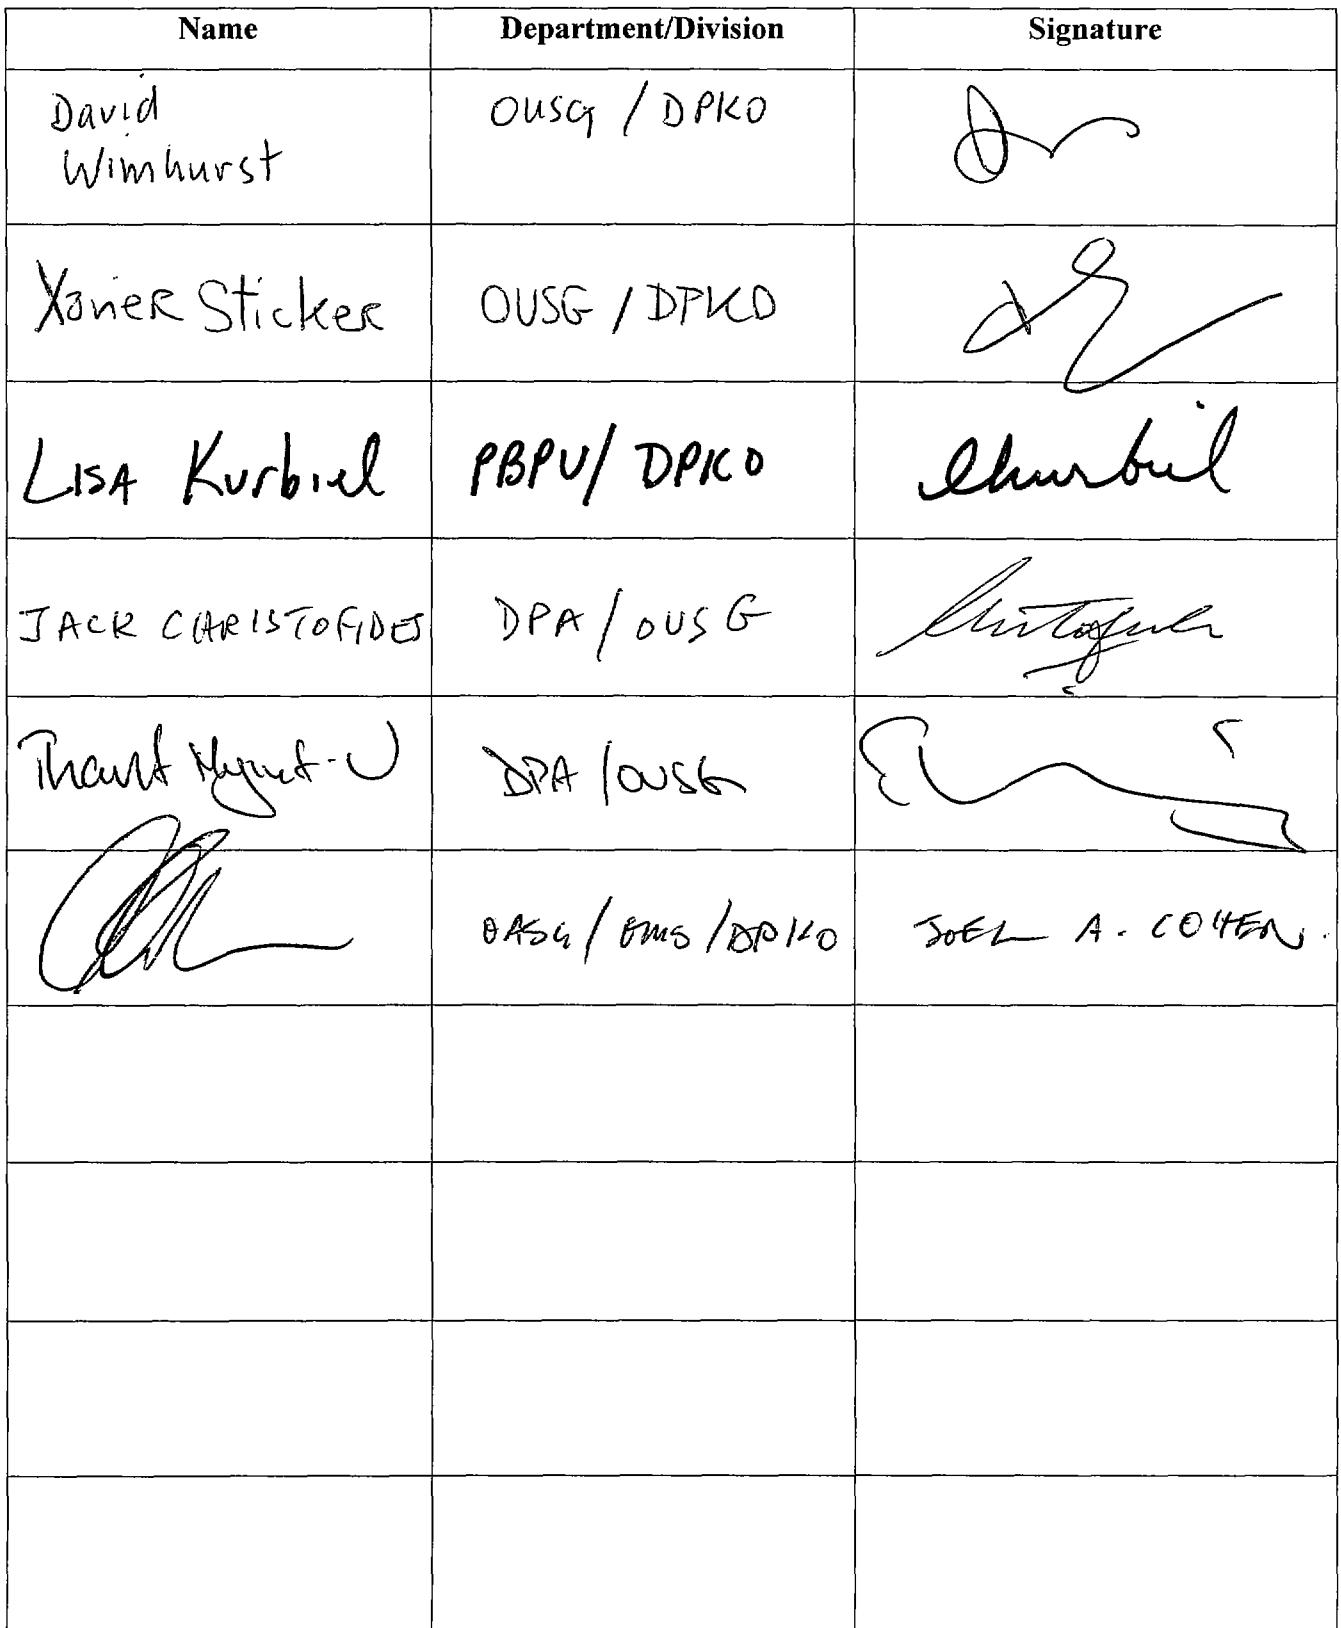 Name Department/Division Signature
David OUSG / DPKO
Wimhurst
Xavier Sticker OUSG / DPKO
LISA Kurbiel PBPU / DPKO LKurbiel
JACK CHRISTOFIDES DPA / OUSG
Thant Myint-U DPA / OUSG
OASG / OMS / DPKO JOEL A. COHEN.